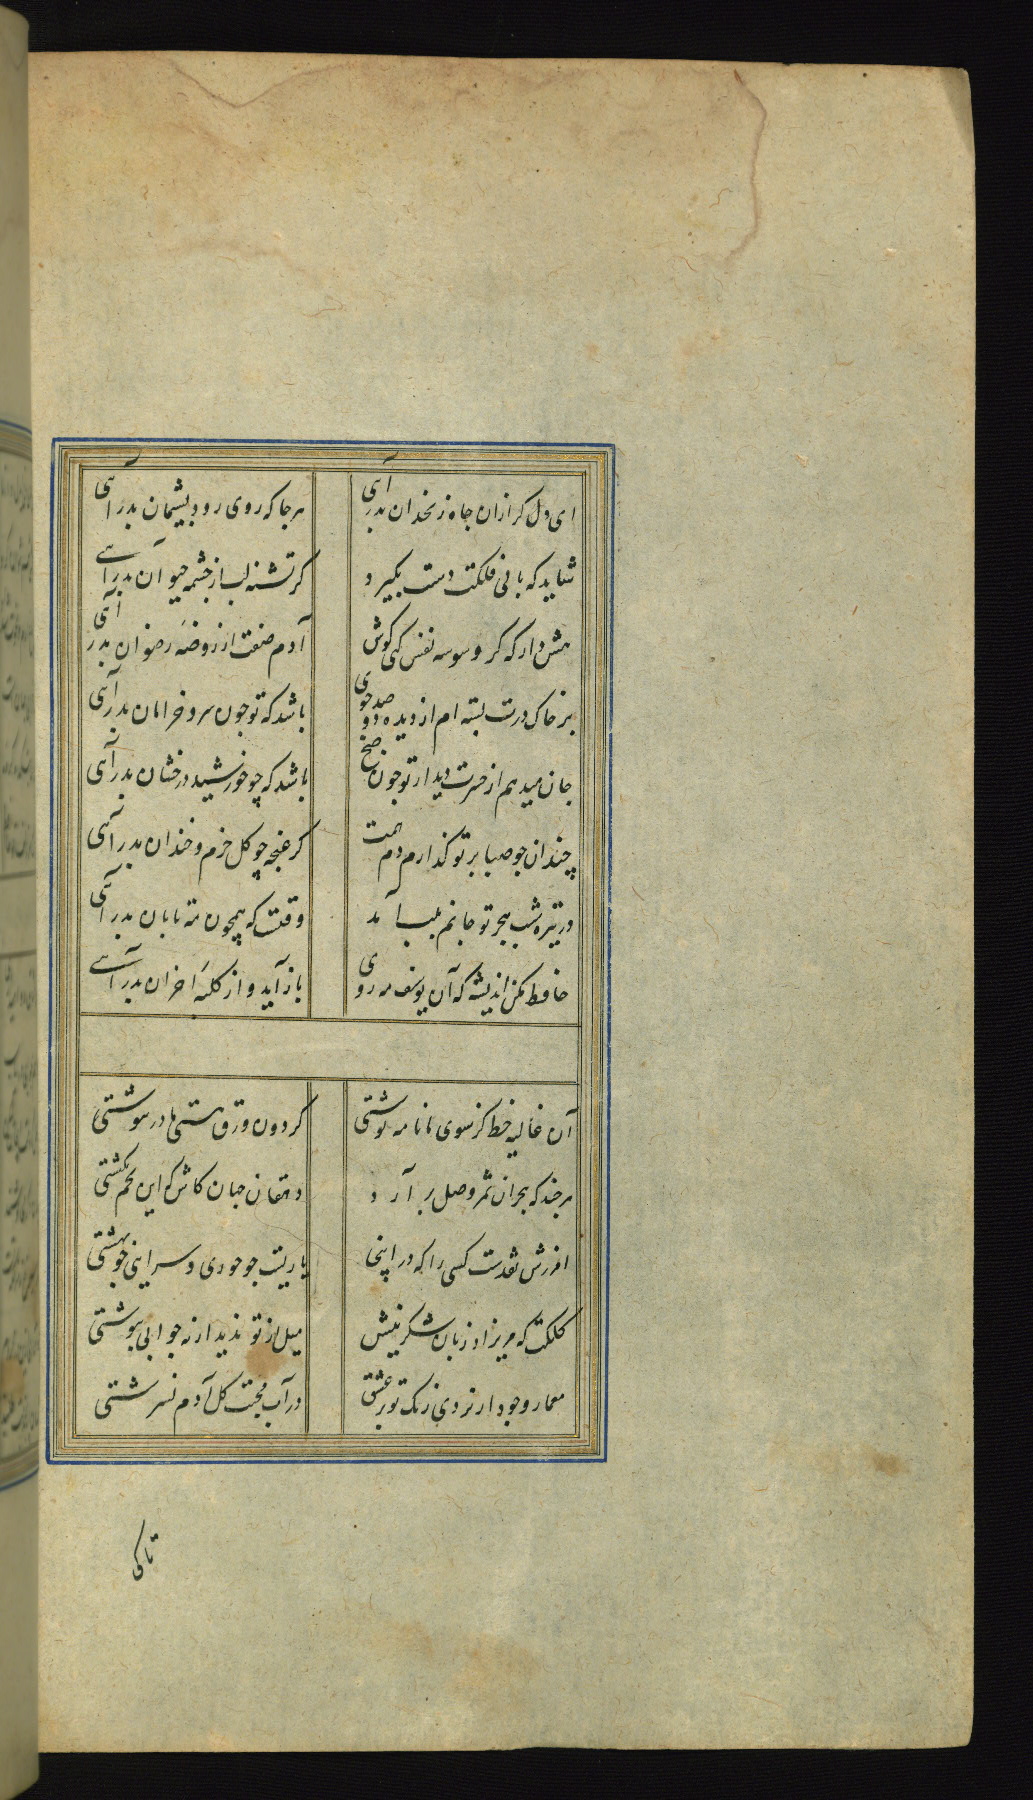 ای دل کر ازان جاه زنخدان بدر آیی هر جا که روی رود پشیمان بدر آیی
شاید که بابی فلکت دست بگیرد کر تشنه لب از چشمه حیوان بدر آیی
هش دار که کر وسوسه نفس کنی کوش آدم صفت از روضه رضوان بدر آیی
بر خاک درت بسته ام از دیده دو صد جوی باشد که تو جون سرو خرامان بدر آیی
جان میدهم از حسرت دیدار تو جون صبح باشد که چو خورشید درخشان بدر آیی
چندان جو صبا بر تو کذارم دم همت کز غنچه چو کل خرم و خندان بدر آیی
در تیره شب هجر تو جانم بلب آمد وقتست که همچون مه تابان بدر آیی
حافظ مکن اندیشه که آن یوسف مه روی باز آید و از کلبه احزان بدر آیی
آن غالیه خط کر سوی ما نامه نوشتی کردون ورق هستی ما در ننوشتی
هر جند که هجران ثمر وصل بر آرد دهقان جهان کاش که این تخم نکشتی
امرزش نقدست کسی را که در اینجا یاریست جو حوری و سرایی جو بهشتی
کلکت که مریزاد زبان شکرینش میل از تو ندید ار نه جوابی بنوشتی
معمار وجود ار نزدی رنک تو بر عشق در آب محبت کل آدم نسرشتی
تا کی